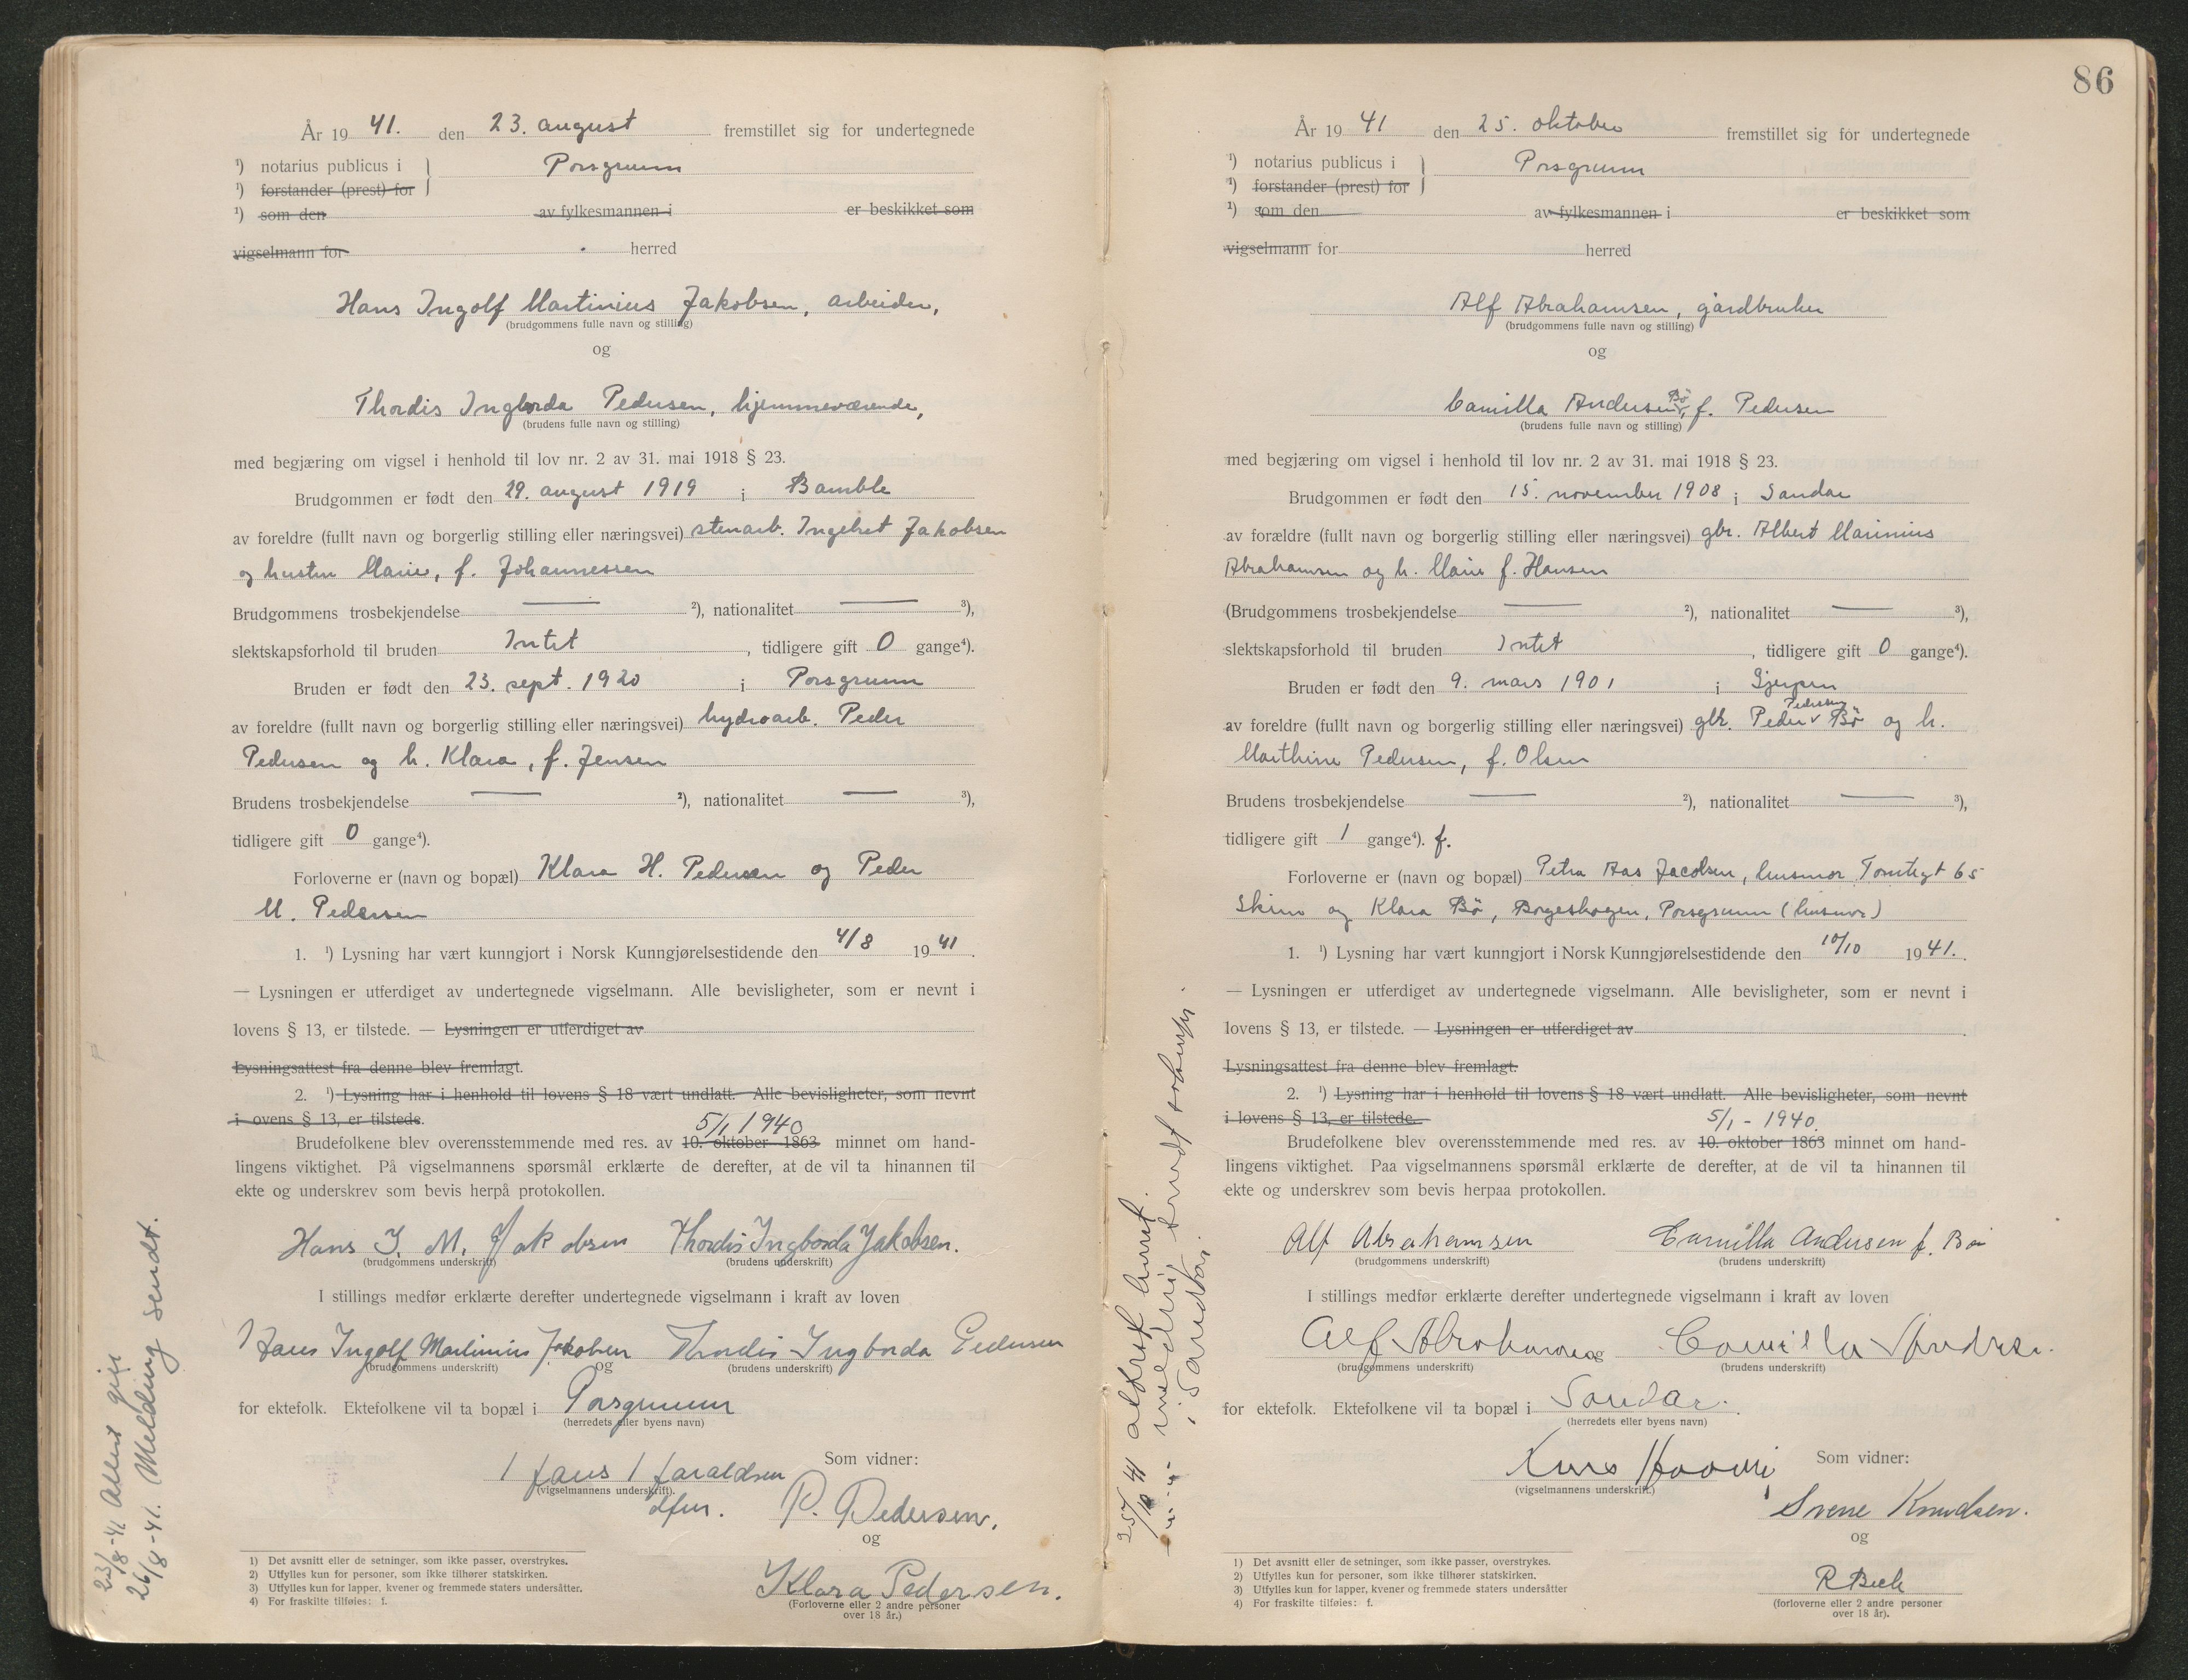 År 19 41. den 23. august fremstillet sig for undertegnede
¹) notarius publicus i } Porsgrunn
¹) forstander (prest) for
¹) som den av fylkesmannen i er beskikket som
vigselmann for herred
Hans Ingolf Martinius Jakobsen, arbeider,
(brudgommens fulle navn og stilling)
og
Thordis Ingborda Pedersen, hjemmeværende,
(brudens fulle navn og stilling)
med begjæring om vigsel i henhold til lov nr. 2 av 31. mai 1918 § 23.
Brudgommen er født den 29. august 1919 i Bamble
av foreldre (fullt navn og borgerlig stilling eller næringsvei) stenarb. Ingebret Jakobsen
og hustru Marie, f. Johannessen
Brudgommens trosbekjendelse — ²), nationalitet — ³),
slektskapsforhold til bruden Intet, tidligere gift 0 gange⁴).
Bruden er født den 23. sept. 1920 i Porsgrunn
av foreldre (fullt navn og borgerlig stilling eller næringsvei) hydroarb. Peder
Pedersen og h. Klara, f. Jensen
Brudens trosbekjendelse — ²), nationalitet — ³),
tidligere gift 0 gange⁴).
Forloverne er (navn og bopæl) Klara H. Pedersen og Peder
M. Pedersen
1. ¹) Lysning har vært kunngjort i Norsk Kunngjørelsestidende den 4/8 19 41.
— Lysningen er utferdiget av undertegnede vigselmann. Alle bevisligheter, som er nevnt i
lovens § 13, er tilstede. — Lysningen er utferdiget av
Lysningsattest fra denne blev fremlagt.
2. ¹) Lysning har i henhold til lovens § 18 vært undlatt. Alle bevisligheter, som nevnt
i ovens § 13, er tilstede.
5/1 1940
Brudefolkene blev overensstemmende med res. av 10. oktober 1863 minnet om hand-
lingens viktighet. På vigselmannens spørsmål erklærte de derefter, at de vil ta hinannen til
ekte og underskrev som bevis herpå protokollen.
Hans I. M. Jakobsen Thordis Ingborda Jakobsen.
(brudgommens underskrift) (brudens underskrift)
I stillings medfør erklærte derefter undertegnede vigselmann i kraft av loven
Hans Ingolf Martinius Jakobsen og Thordis Ingborda Pedersen
(brudgommens underskrift) (brudens underskrift)
for ektefolk. Ektefolkene vil ta bopæl i Porsgrunn
(herredets eller byens navn)
Hans Haraldsen Som vidner:
(vigselmannens underskrift).
dfm. P. Pedersen.
og
Klara Pedersen.
(Forloverne eller 2 andre personer
over 18 år.)
1) Det avsnitt eller de setninger, som ikke passer, overstrykes.
2) Utfylles kun for personer, som ikke tilhører statskirken.
3) Utfylles kun for lapper, kvener og fremmede staters undersåtter.
4) For fraskilte tilføies: f.
23/8-41 Attest give
26/8-41. Melding sendt.
86
År 19 41 den 25. oktober fremstillet sig for undertegnede
¹) notarius publicus i } Porsgrunn
¹) forstander (prest) for
¹) som den av fylkesmannen i er beskikket som
vigselmann for herred
Alf Abrahamsen, gårdbruker
(brudgommens fulle navn og stilling)
og
Camilla Andersen Bø, f. Pedersen
(brudens fulle navn og stilling)
med begjæring om vigsel i henhold til lov nr. 2 av 31. mai 1918 § 23.
Brudgommen er født den 15. november 1908 i Sandar
av forældre (fullt navn og borgerlig stilling eller næringsvei) gbr. Albert Marinius
Abrahamsen og h. Marie f. Hansen
(Brudgommens trosbekjendelse — ²), nationalitet — ³),
slektskapsforhold til bruden Intet, tidligere gift 0 gange⁴).
Bruden er født den 9. mars 1901 i Gjerpen
av foreldre (fullt navn og borgerlig stilling eller næringsvei) gbr. Peder Pedersen Bø og h.
Marthine Pedersen, f. Olsen
Brudens trosbekjendelse — ²), nationalitet — ³),
tidligere gift 1 gange⁴). f.
Forloverne er (navn og bopæl) Petra Aas Jacobsen, husmor, Tomtegt 65
Skien og Klara Bø, Borgeshagen, Porsgrunn (husmor)
1. ¹) Lysning har vært kunngjort i Norsk Kunngjørelsestidende den 10/10 19 41.
— Lysningen er utferdiget av undertegnede vigselmann. Alle bevisligheter, som er nevnt i
lovens § 13, er tilstede. — Lysningen er utferdiget av
Lysningsattest fra denne blev fremlagt.
2. ¹) Lysning har i henhold til lovens § 18 vært undlatt. Alle bevisligheter, som nevnt
i lovens § 13, er tilstede.
5/1 - 1940.
Brudefolkene blev overensstemmende med res. av 10. oktober 1863 minnet om hand-
lingens viktighet. Paa vigselmannens spørsmål erklærte de derefter, at de vil ta hinannen til
ekte og underskrev som bevis herpaa protokollen.
Alf Abrahamsen Camilla Andersen f. Bø
(brudgommens underskrift) (brudens underskrift)
I stillings medfør erklærte derefter undertegnede vigselmann i kraft av loven
Alf Abrahamsen og Camilla Andersen
(brudgommens underskrift) (brudens underskrift)
for ektefolk. Ektefolkene vil ta bopæl i Sandar.
(herredets eller byens navn)
Som vidner:
(vigselmannens underskrift.)
Svene Knudsen.
og
R Bech
(forloverne eller 2 andre personer
over 18 år).
1) Det avsnitt eller de setninger, som ikke passer, overstrykes.
2) Utfylles kun for personer, som ikke tilhører statskirken.
3) Utfylles kun for lapper, kvener og fremmede staters undersåtter
4) For fraskilte tilføies: f.
25/10 41 attest
sendt
i Sandar.